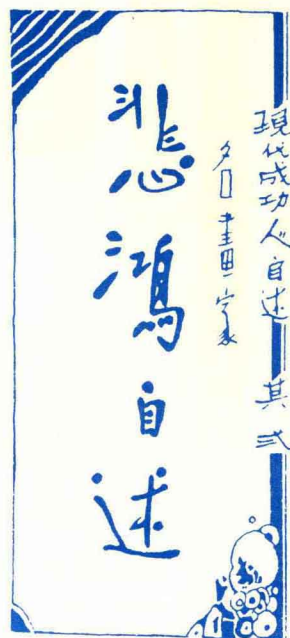 現代成功人自述 其弍
名畫家
悲鴻自述